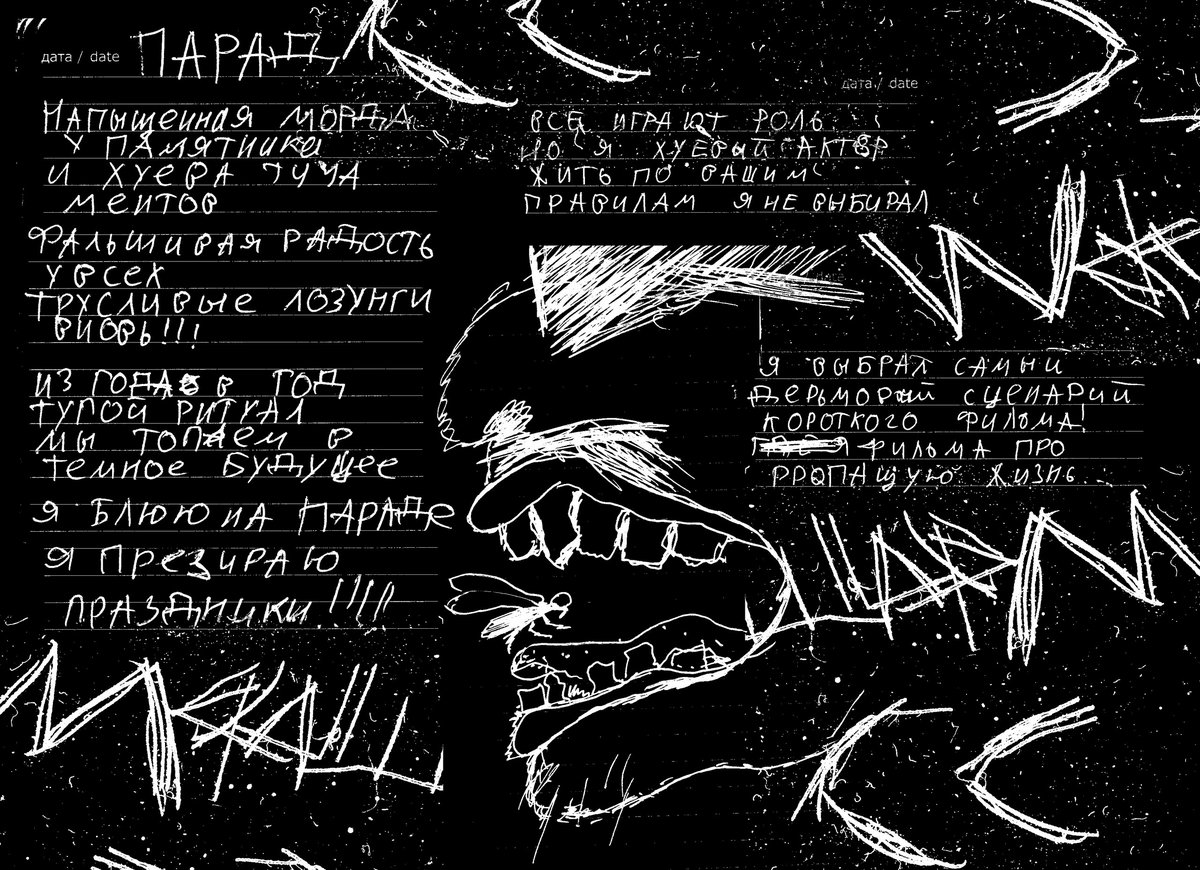 дата / date
ПАРАД
НАПЫЩЕННАЯ МОРДА
У ПАМЯТНИКА
И ХУЕВА ТУЧА
МЕНТОВ
ФАЛЬШИВАЯ РАДОСТЬ
У ВСЕХ
ТРУСЛИВЫЕ ЛОЗУНГИ
ВНОВЬ!!!
ИЗ ГОДА В ГОД
ТУПОЙ РИТУАЛ
МЫ ТОПАЕМ В
ТЕМНОЕ БУДУЩЕЕ
Я БЛЮЮ НА ПАРАДЕ
Я ПРЕЗИРАЮ
ПРАЗДНИКИ!!!!
дата / date
ВСЕ ИГРАЮТ РОЛЬ
НО Я ХУЕВЫЙ АКТЁР
ЖИТЬ ПО ВАШИМ
ПРАВИЛАМ Я НЕ ВЫБИРАЛ
Я ВЫБРАЛ САМЫЙ
ДЕРЬМОВЫЙ СЦЕНАРИЙ
КОРОТКОГО ФИЛЬМА!
ФИЛЬМА ПРО
ПРОПАЩУЮ ЖИЗНЬ